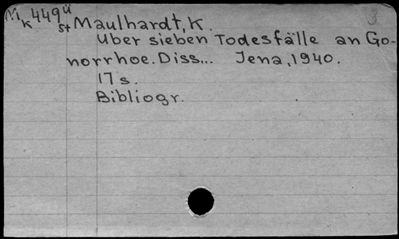 Nk 449u
St Maulhardt, K.
Uber sieben Todesfälle an Go-
norrhoe. Diss... Jena, 1940.
17 s.
Bibliogr.